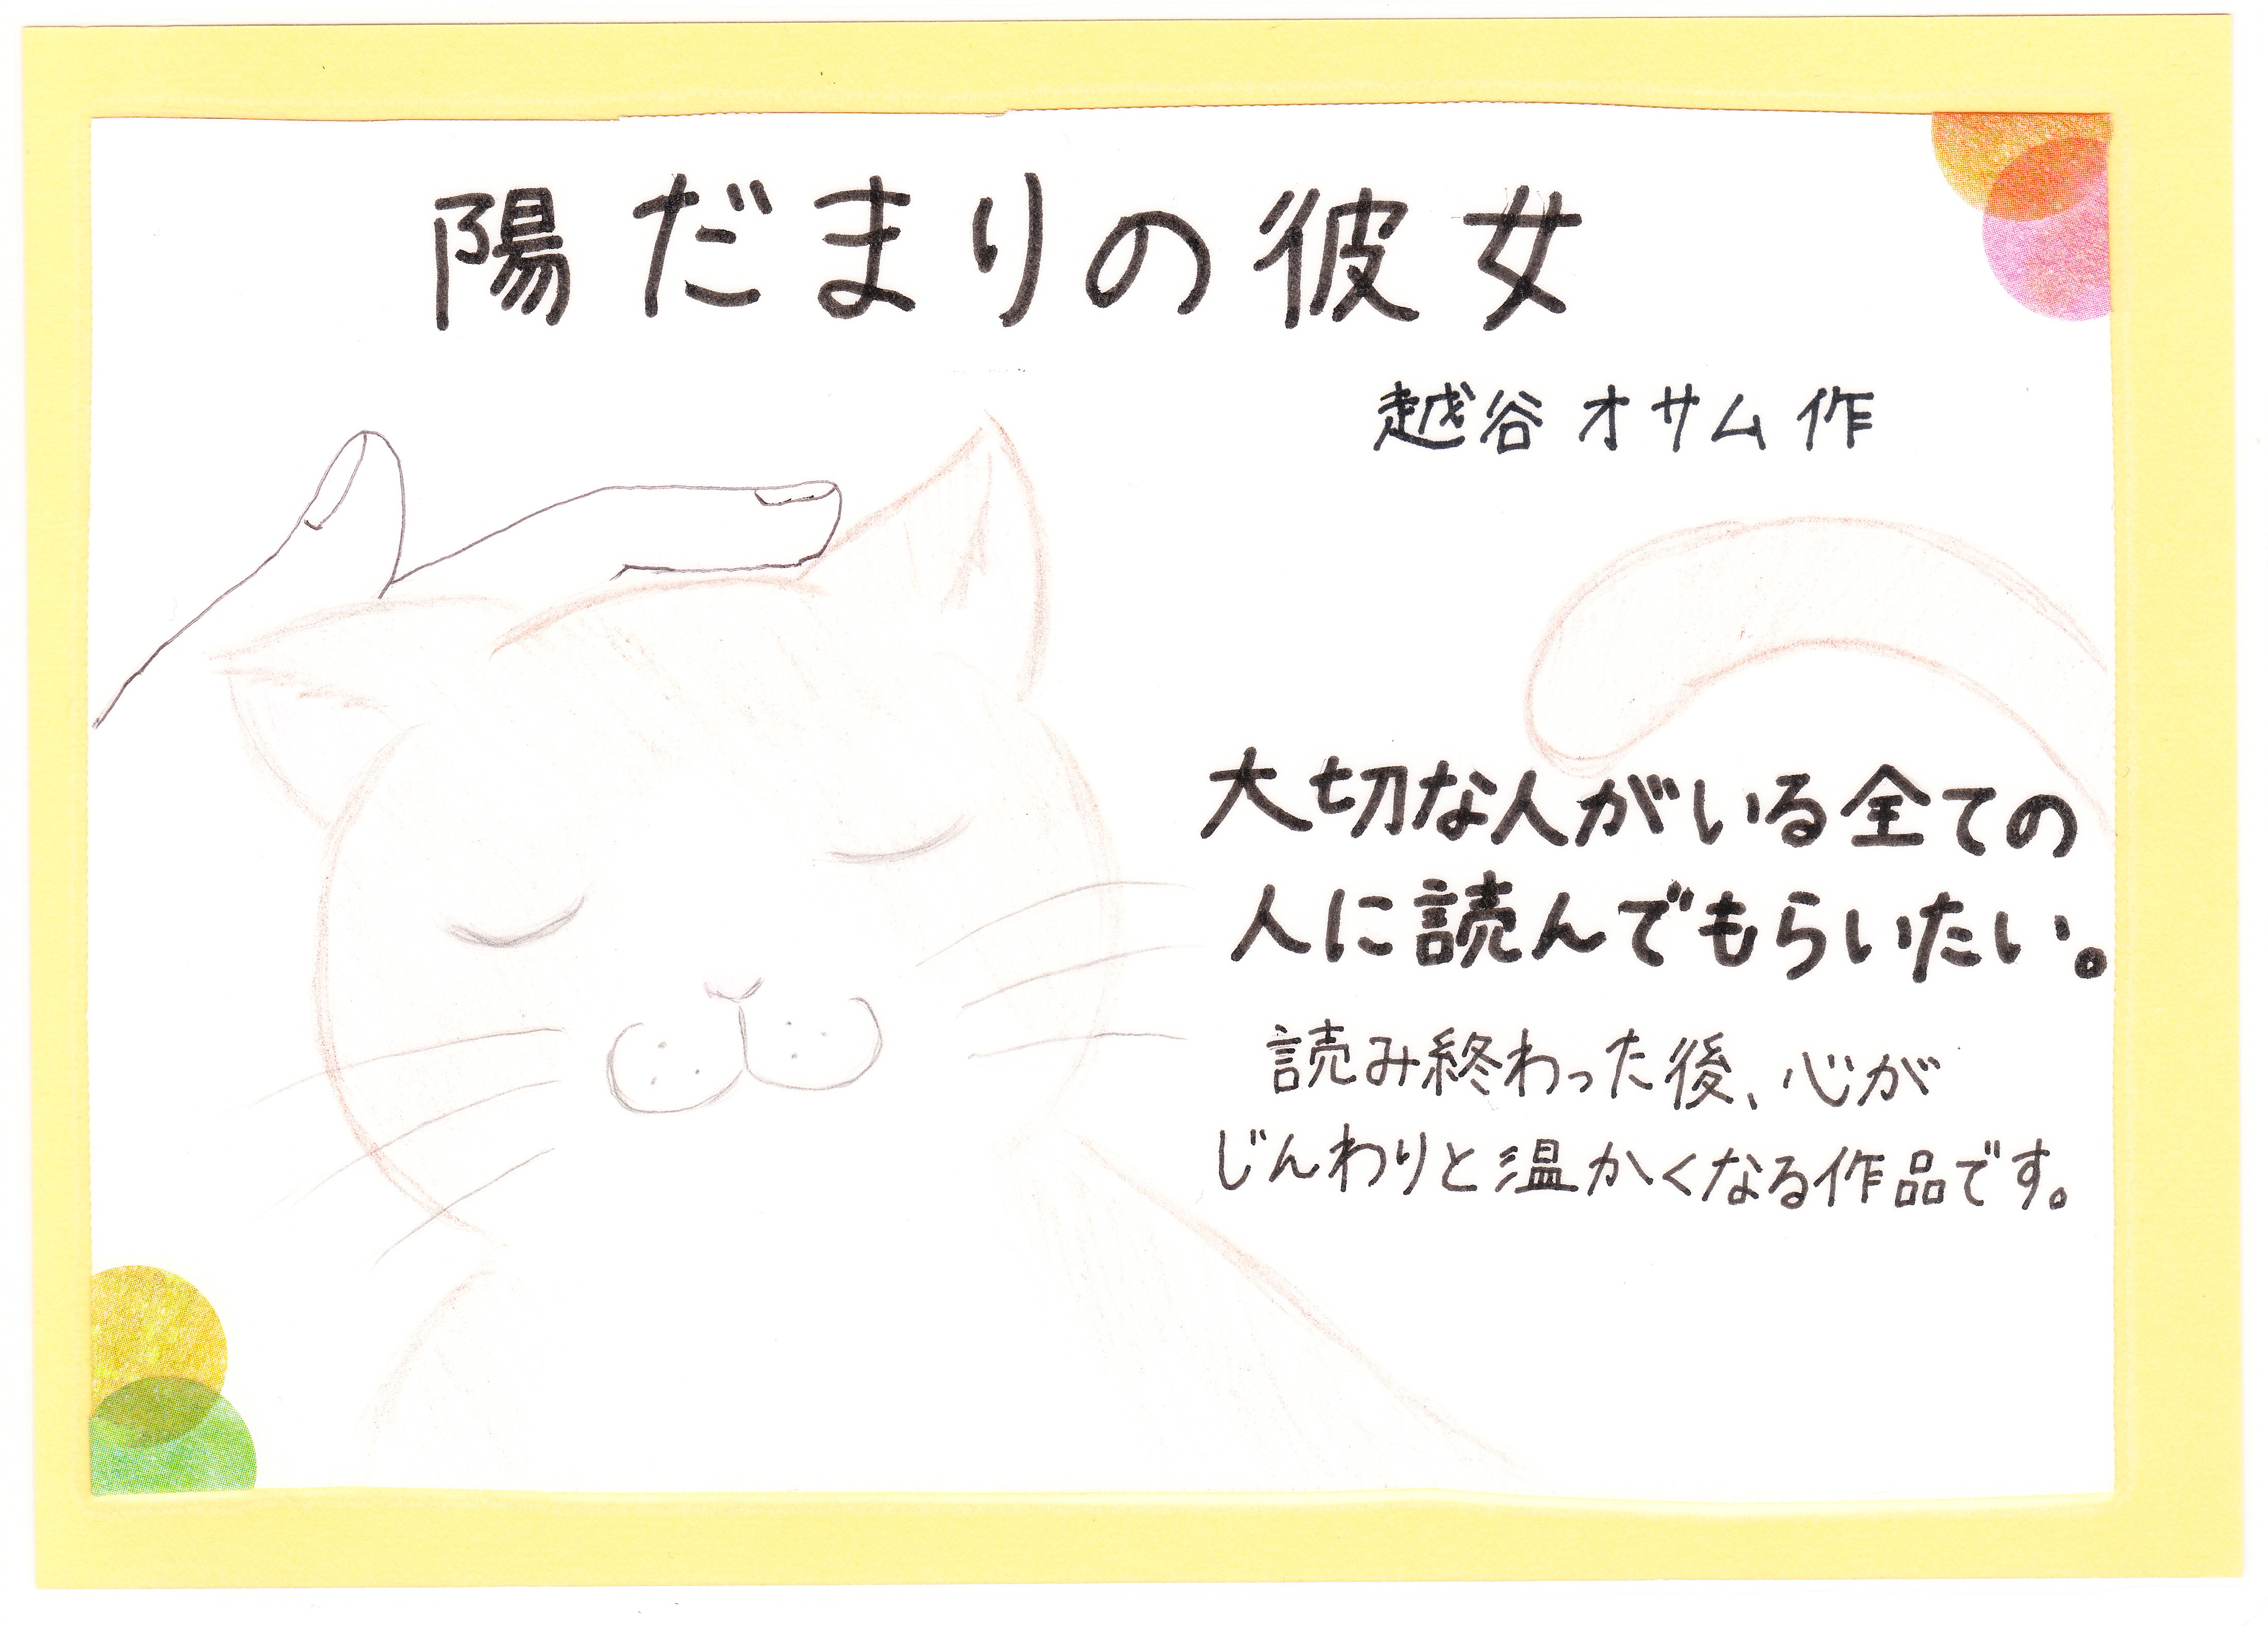 陽だまりの彼女
越谷オサム作
大切な人がいる全ての
人に読んでもらいたい。
読み終わった後、心が
じんわりと温かくなる作品です。